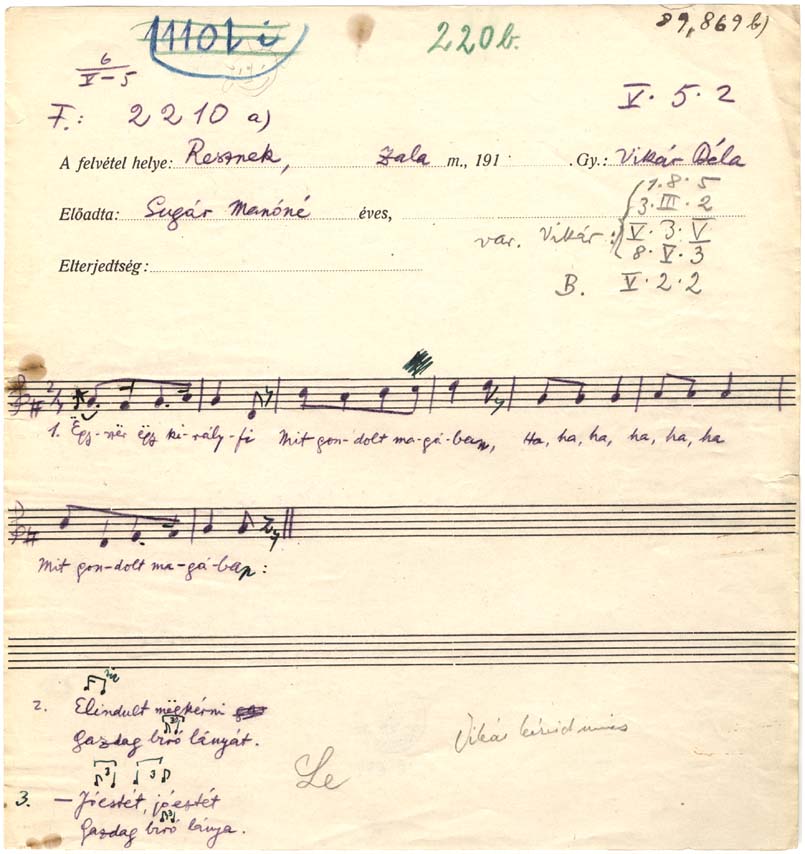 11101 i
220b.
89,869 b)
6
V–5
V. 5. 2
F.: 2210 a)
A felvétel helye: Resznek, Zala m., 191 .Gy.: Vikár Béla
1. 8. 5
3. III. 2
Előadta: Sugár Manóné éves,
var. Vikár: V. 3. V
8. V. 3
Elterjedtség:
B. V. 2. 2
2/4
1. Ëgy-szër ëgy ki-rály-fi Mit gon-dolt ma-gá-ban, Ha, ha, ha, ha, ha, ha
Mit gon-dolt ma-gá-ban:
2. Elindult mëgkérni
Gazdag biró lányát.
Vikár
Le
3. – Jóestét, jóestét
Gazdag biró lánya.